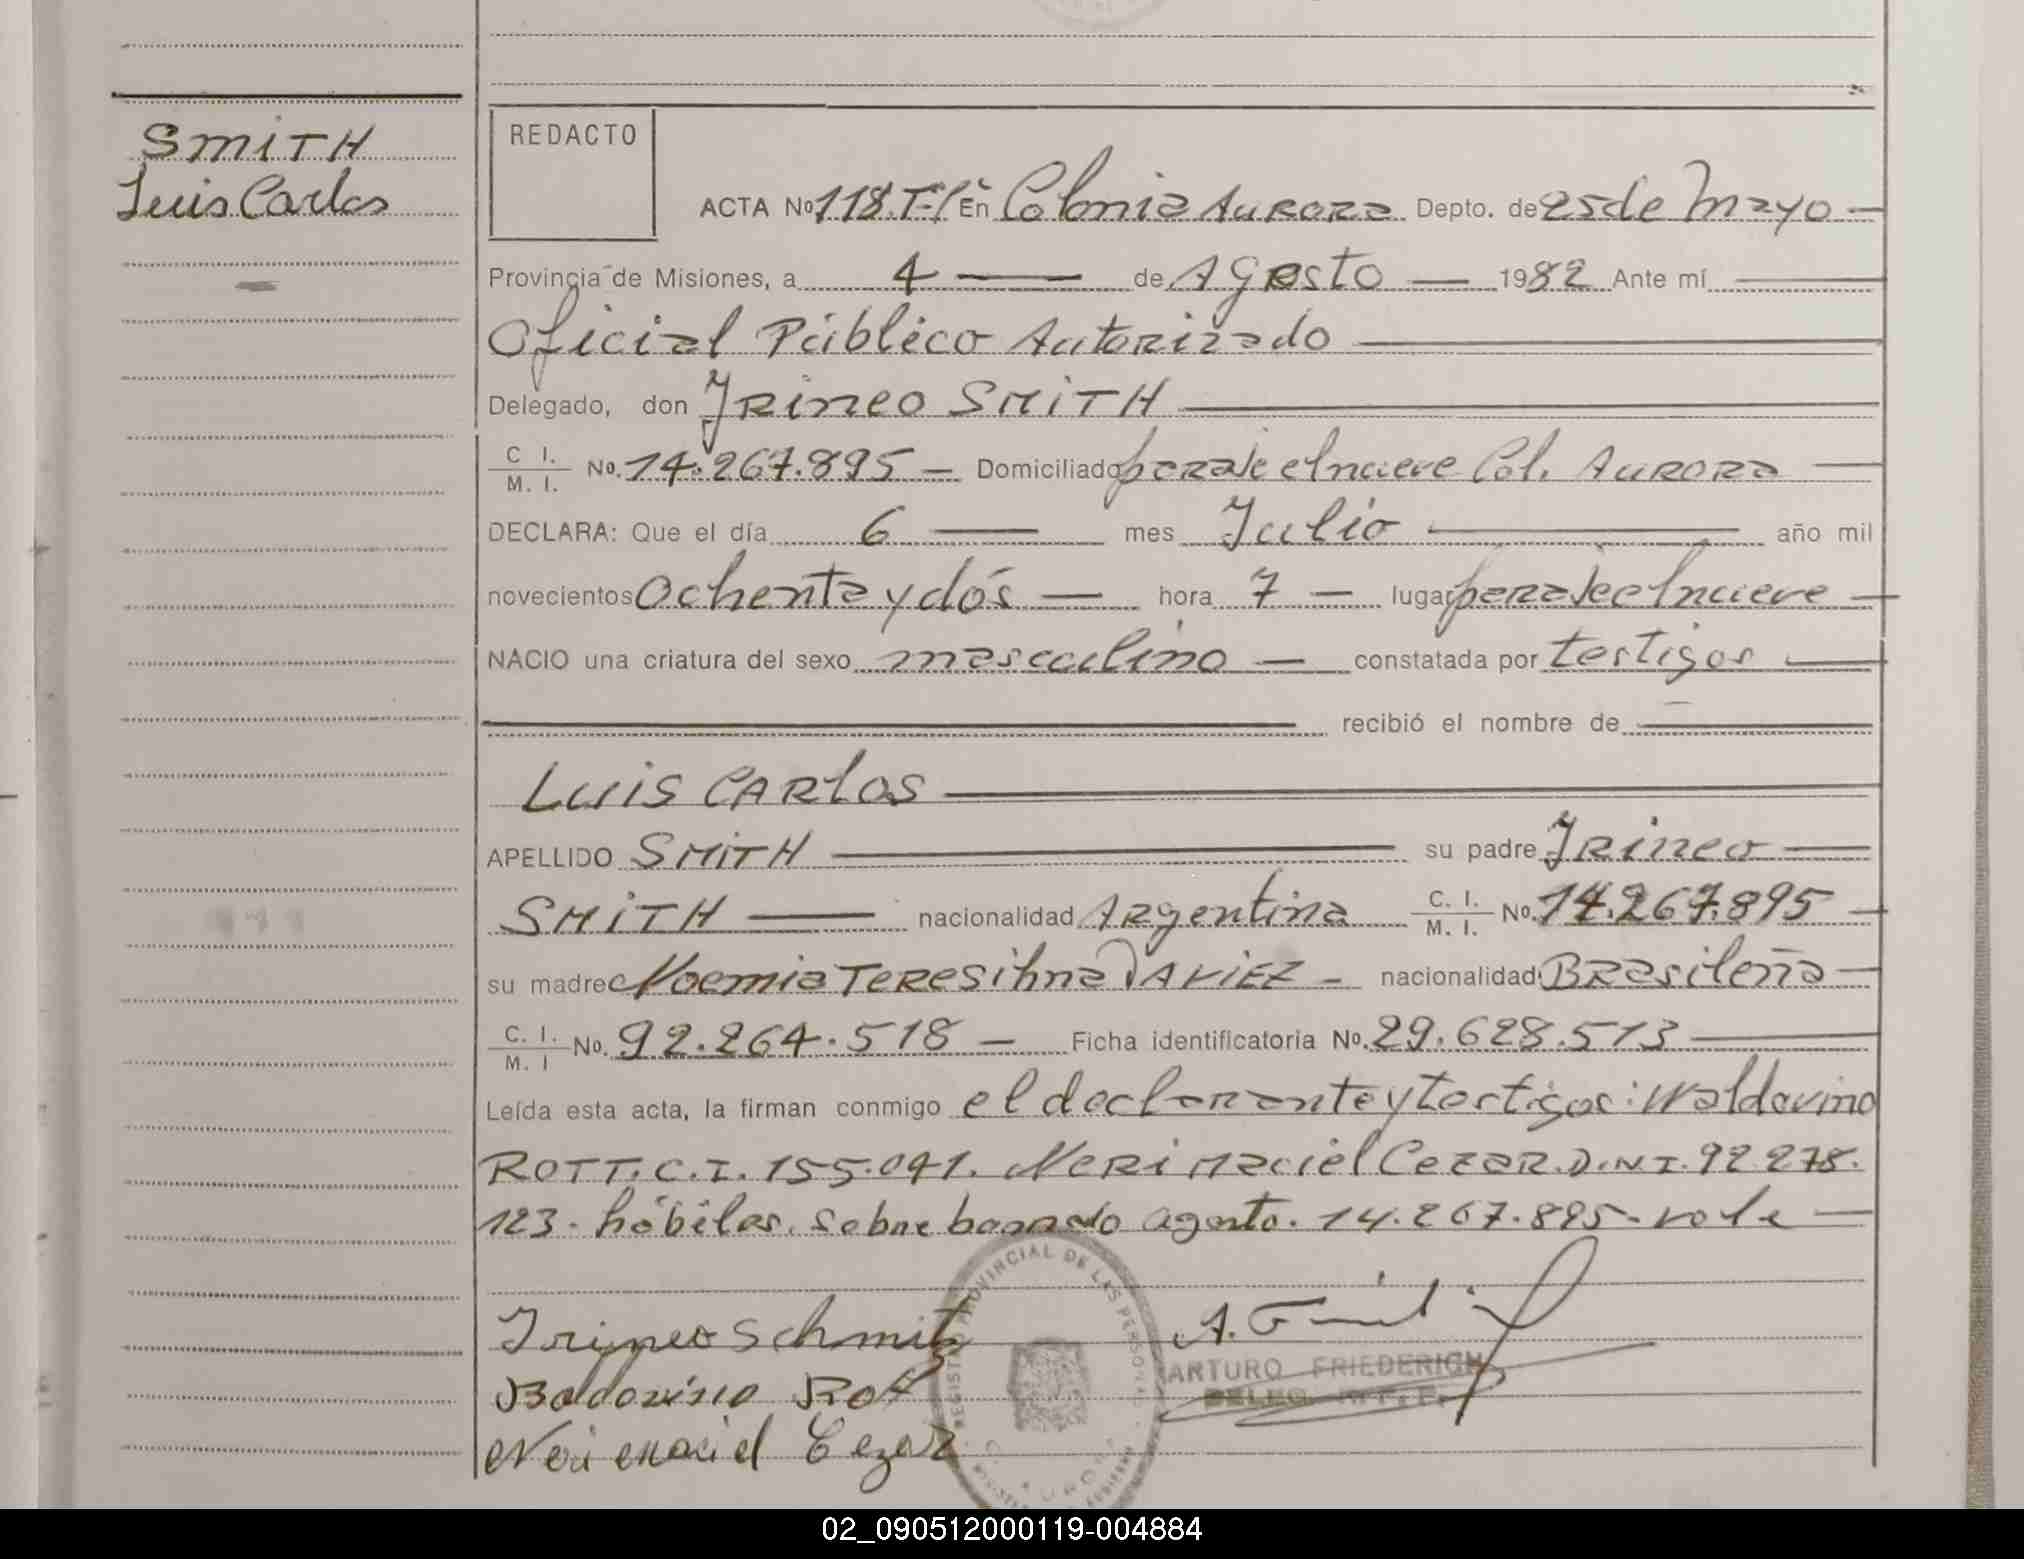 SMITH
Luis Carlos
REDACTO
ACTA No 118.T-I En Colonia Aurora Depto. de 25 de Mayo
Provincia de Misiones, a 4 de Agosto 1982 Ante mí
Oficial Público Autorizado
Delegado, don Irineo SMITH
C I. M. I. No. 14.267.895 Domiciliado paraje el nueve Col. Aurora
DECLARA: Que el día 6 mes Julio año mil
novecientos ochenta y dós hora 7 lugar paraje el nueve
NACIO una criatura del sexo masculino constatada por testigos
recibió el nombre de
LUIS CARLOS
APELLIDO SMITH su padre Irineo
SMITH nacionalidad Argentina C. I. M. I. No. 14.267.895
su madre Noemia Teresihna TAVIEZ nacionalidad Brasileña
C. I. M. I No. 92.264.518 Ficha identificatoria No. 29.628.513
Leída esta acta, la firman conmigo el declarante y testigos: Waldovino
ROTT. C.I. 155.091. Neri Maciel Cezar. D.N.I. 92.278.
123. hábiles. sobre borrado agosto. 14.267.895. vale
Irineo Schmit
Badovino Rot
Neri Maciel Cezar
REGISTRO PROVINCIAL DE LAS PERSONAS
ARTURO FRIEDERICH
02_090512000119-004884